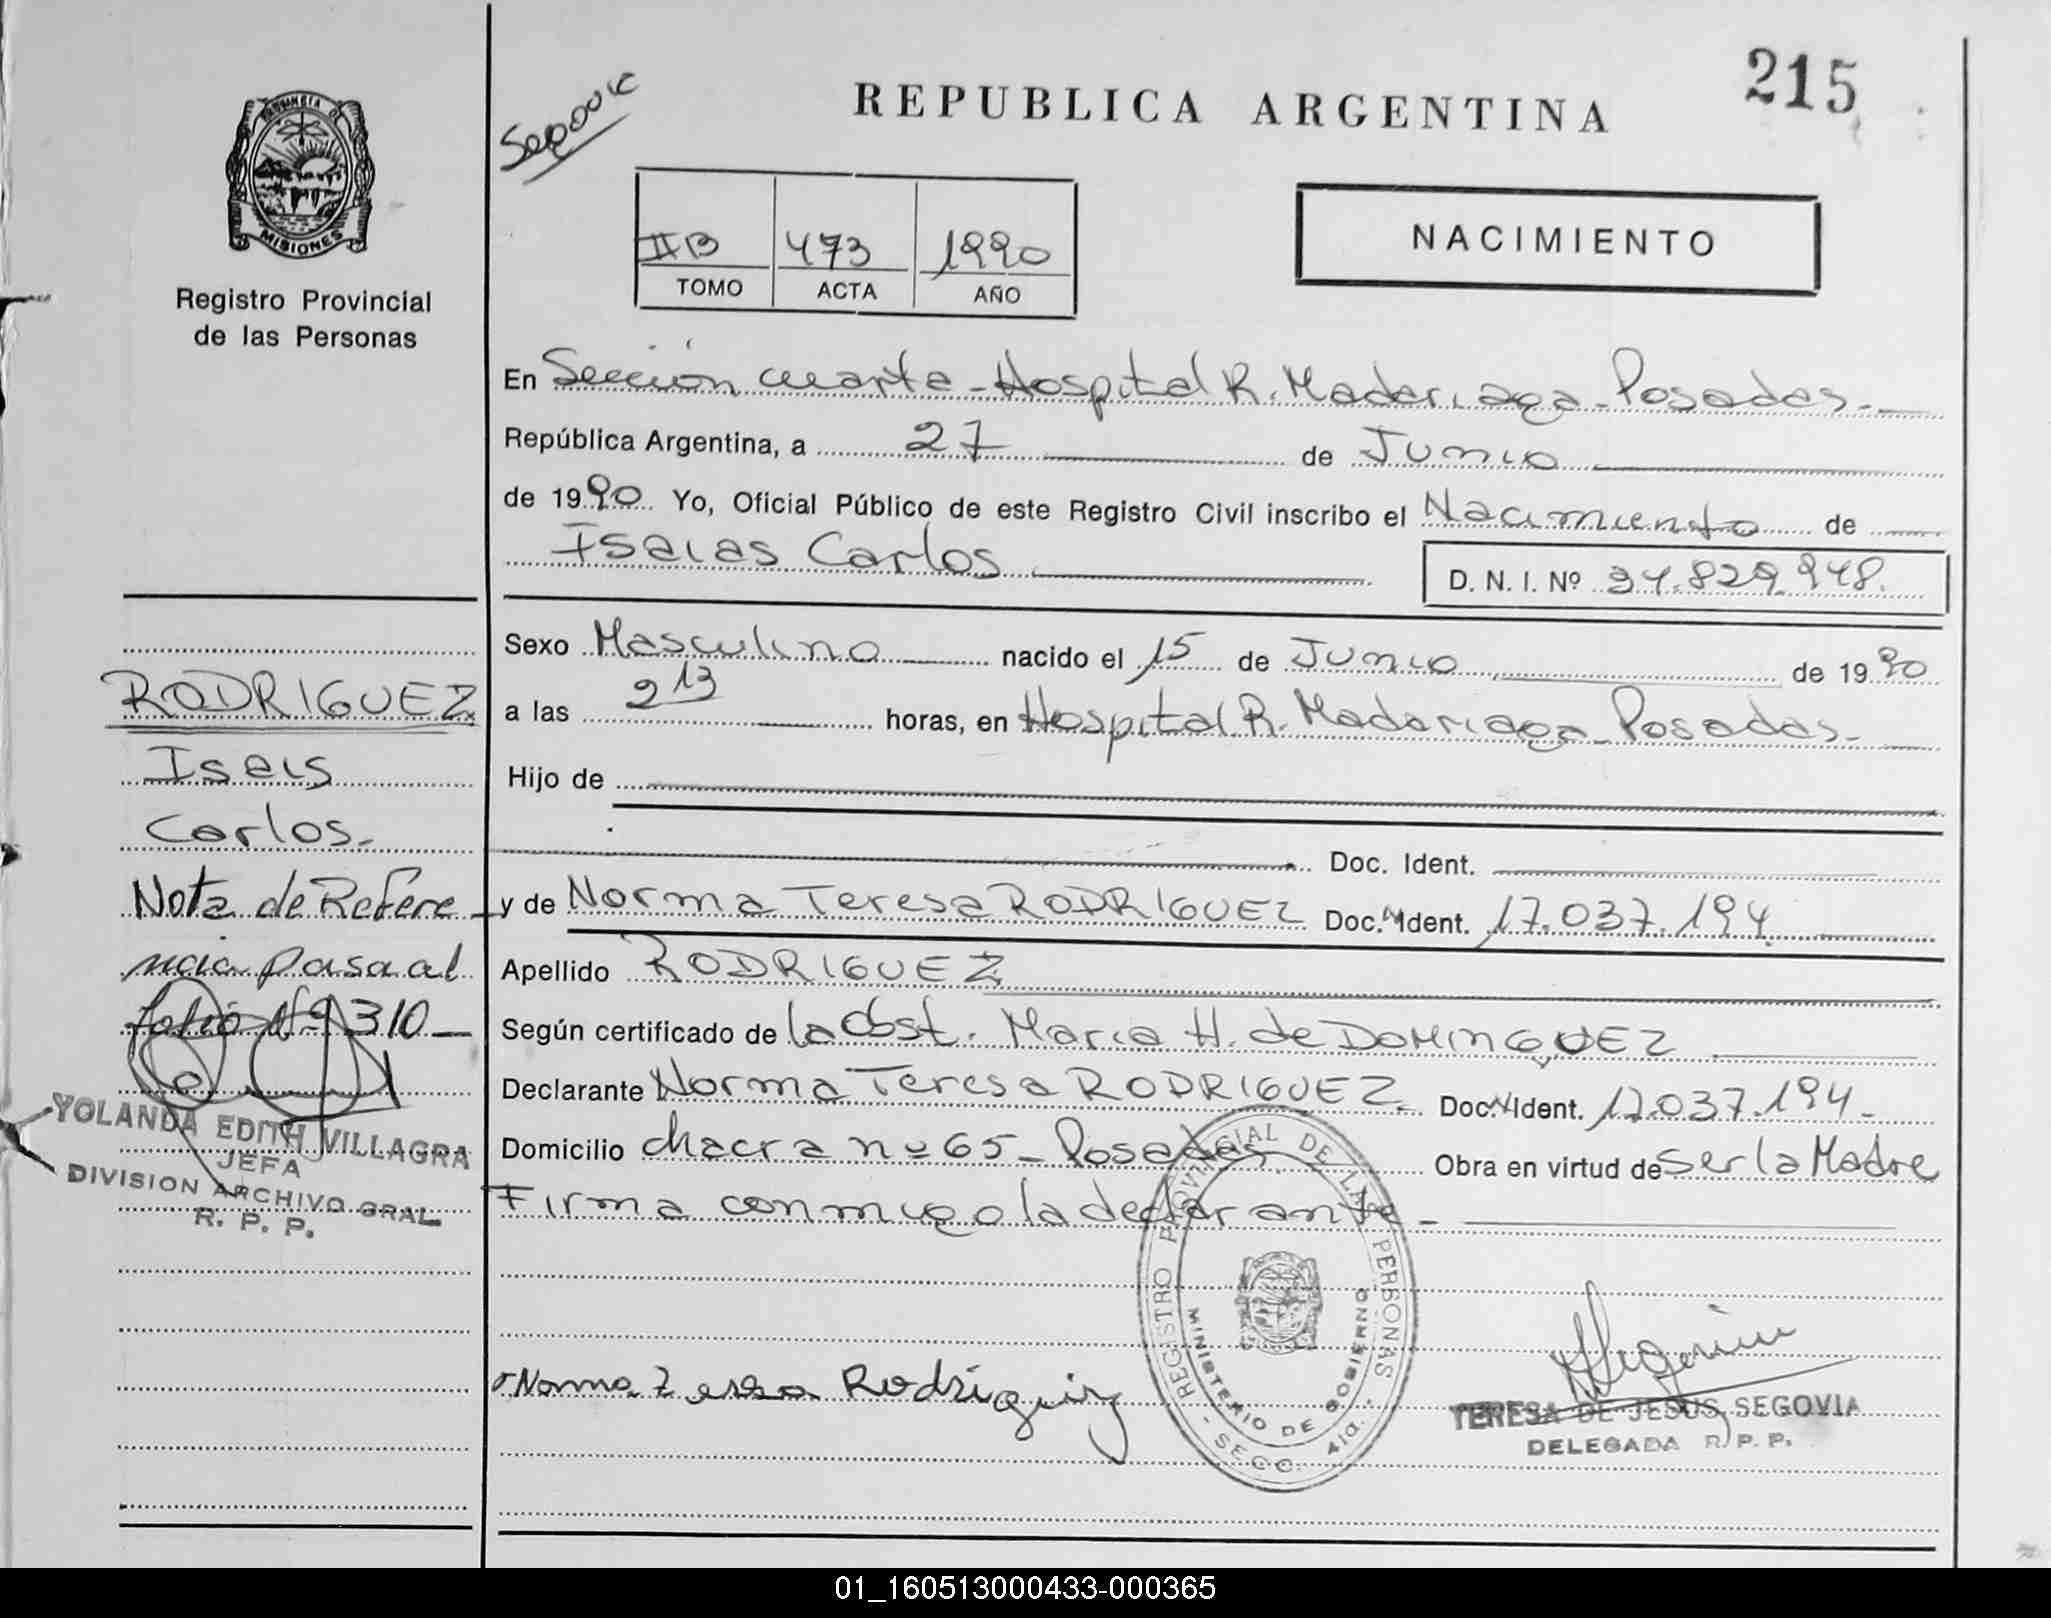 215
REPUBLICA ARGENTINA
PROVINCIA DE
MISIONES
Registro Provincial
de las Personas
IIB 473 1990
TOMO ACTA AÑO
NACIMIENTO
En Sección cuarta - Hospital R. Madariaga - Posadas. -
República Argentina, a 27 de Junio
de 1990. Yo, Oficial Público de este Registro Civil inscribo el Nacimiento de
Isaias Carlos
D. N. I. Nº 34.829.948.
Sexo Masculino nacido el 15 de Junio de 1990
a las 2 13 horas, en Hospital R. Madariaga - Posadas. -
Hijo de
Doc. Ident.
y de Norma Teresa RODRIGUEZ Doc. Ident. 17.037.194
Apellido RODRIGUEZ
Según certificado de la Obst. Maria H. de DOMINGUEZ
Declarante Norma Teresa RODRIGUEZ Doc. Ident. 17.037.194-
Domicilio chacra nº 65 - Posadas Obra en virtud de ser la Madre
Firma conmigo la declarante -
RODRIGUEZ
Isais
Carlos.-
Nota de Refere-
ncia pasa al
folio Nº 310 -
YOLANDA EDITH VILLAGRA
JEFA
DIVISION ARCHIVO GRAL.
R. P. P.
REGISTRO PROVINCIAL DE LAS PERSONAS - SECC. 4ta. -
MINISTERIO DE GOBIERNO
Norma Teresa Rodriguez
TERESA DE JESUS SEGOVIA
DELEGADA R. P. P.
01_160513000433-000365